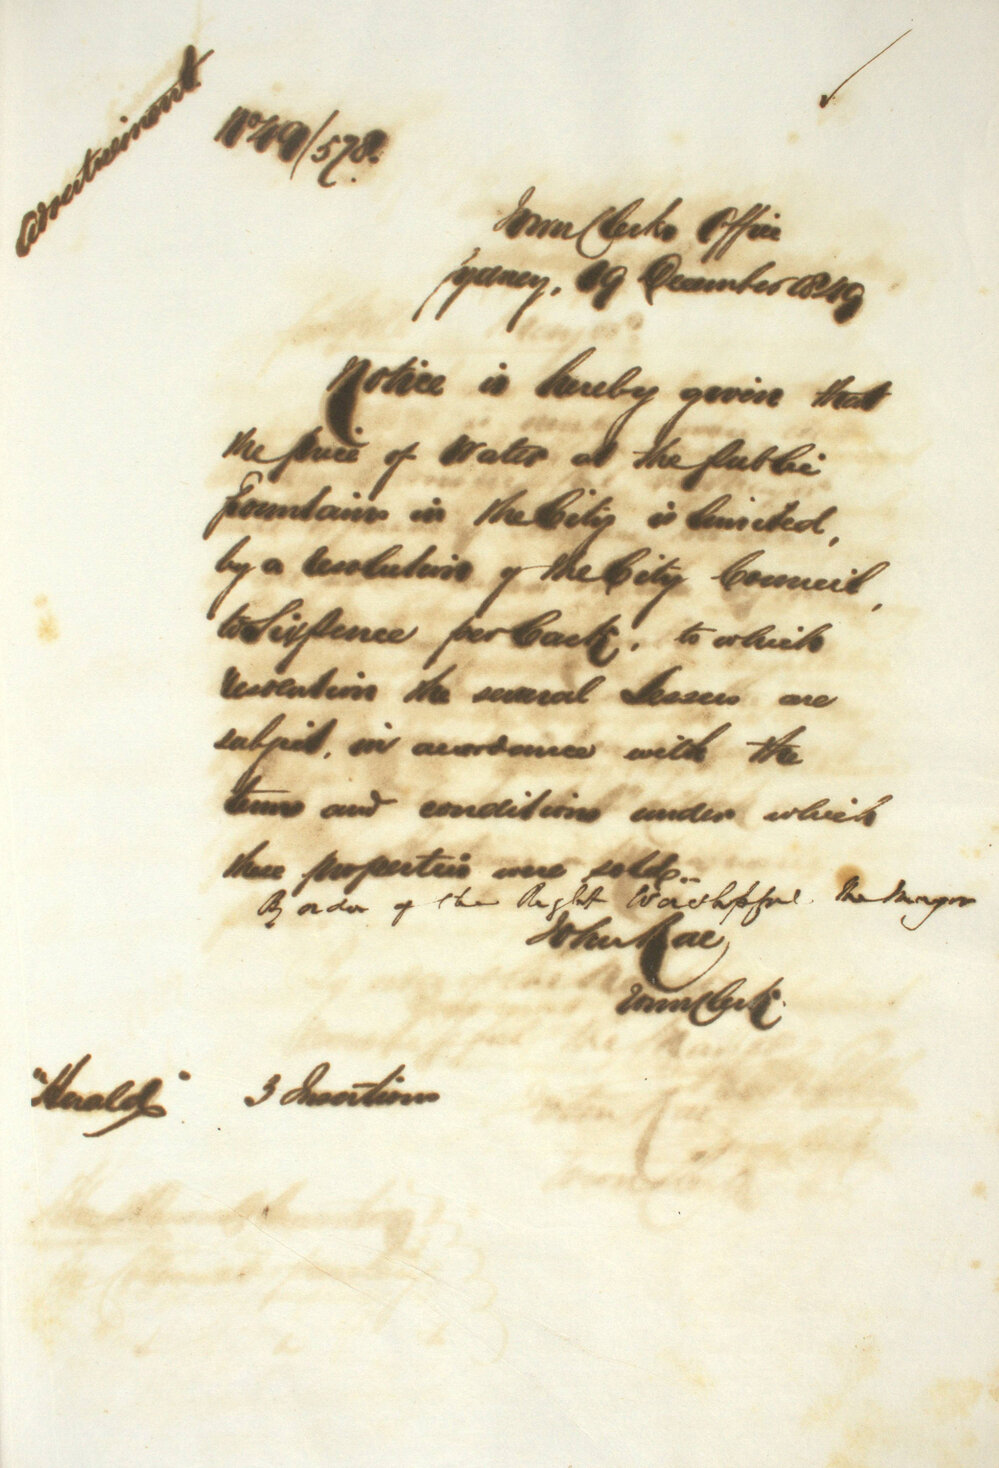 Advertisement
No 49/578.
Town Clerk's Office
Sydney, 19 December 1849
Notice is hereby given that
the price of Water at the public
Fountains in the City is limited,
by a resolution of the City Council,
to Sixpence per Cask, to which
resolution the several Lessees are
subject, in accordance with the
terms and conditions under which
these properties were sold.
By order of the Right Worshipful the Mayor
John Rae
Town Clerk.
"Herald" 3 Insertions